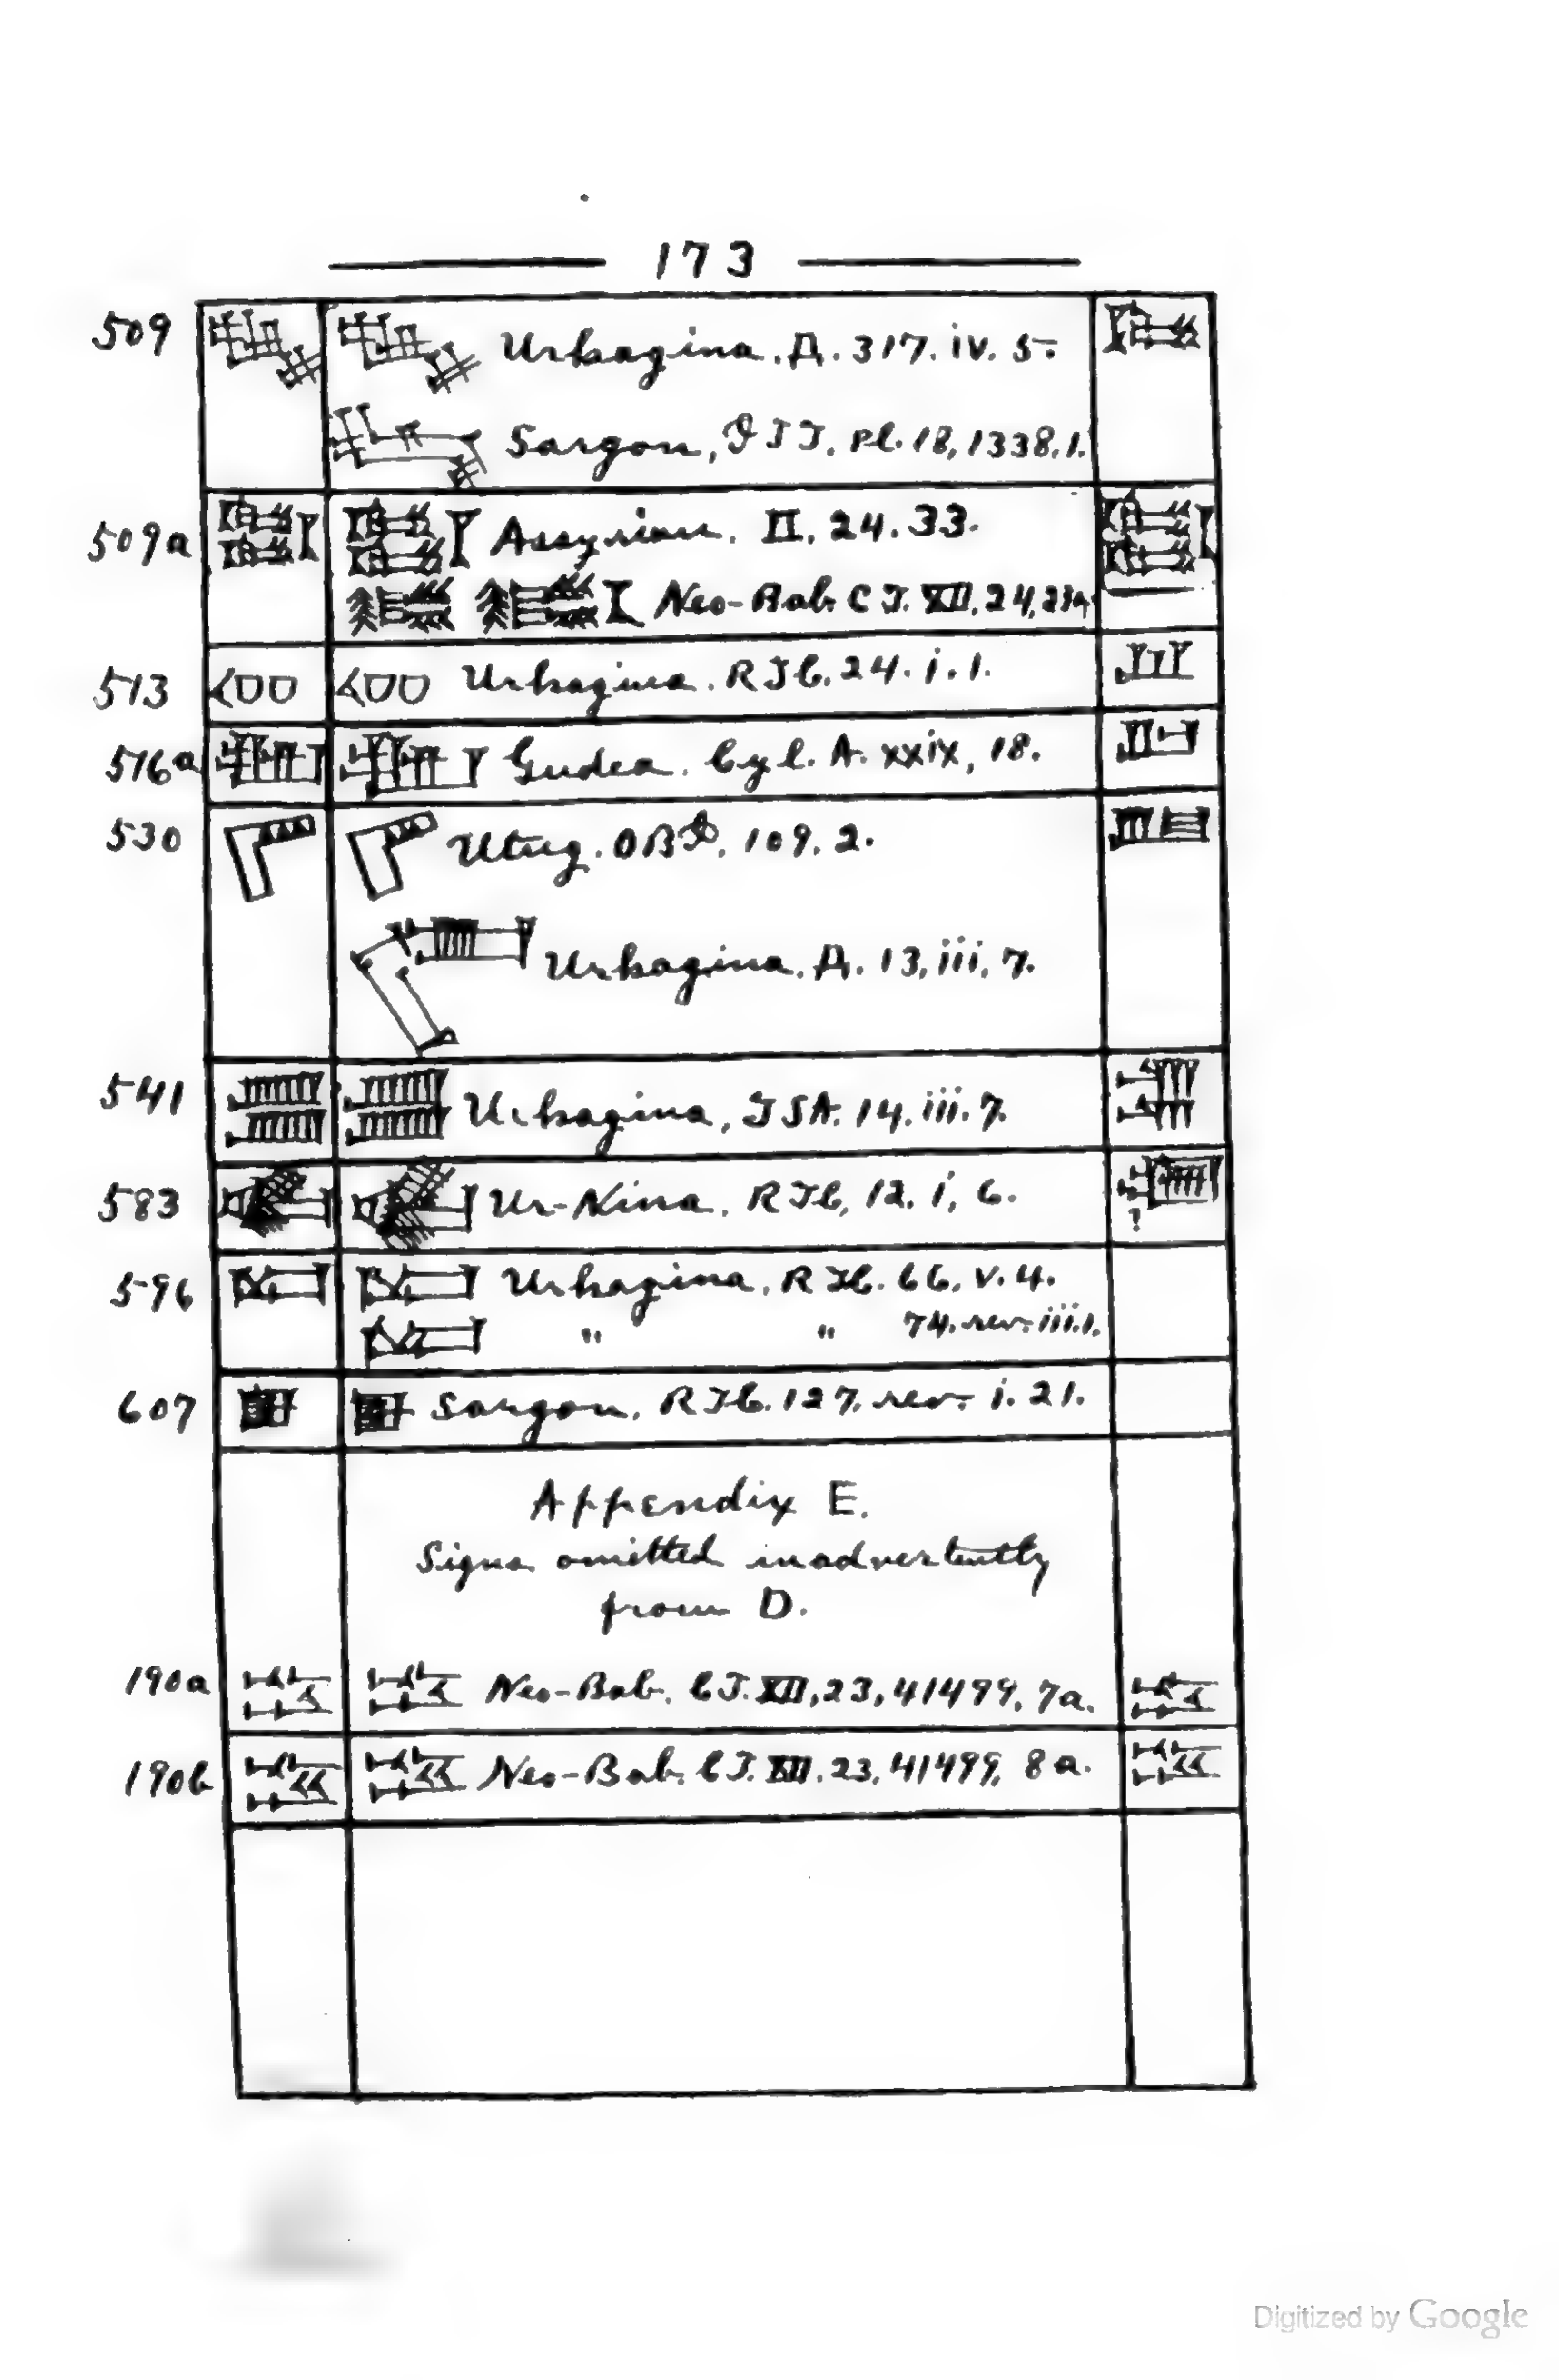 173
509 Urkagina. Д. 317. iv. 5.
Sargon, pl. 18, 1338.1.
509a Assyrian. II. 24. 33.
Neo-Bab. CT. XII, 24, 23a
513 Urkagina. RTC. 24. i. 1.
516a Gudea. Cyl. A. xxix, 18.
530 Utug. 109. 2.
Urkagina. Д. 13, iii, 7.
541 Urkagina, TSA. 14. iii. 7.
583 Ur-Nina. RTC, 12. i, 6.
?
596 Urkagina, RTC. 66. v. 4.
" " 74. rev. iii. 1.
607 Sargon. RTC. 127. rev. i. 21.
Appendix E.
Signs omitted inadvertently
from D.
190a Neo-Bab. CT. XII, 23, 41499, 7a.
190b Neo-Bab. CT. XII. 23, 41499, 8a.
Digitized by Google